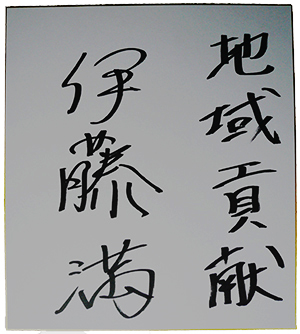 地域貢献
伊藤満